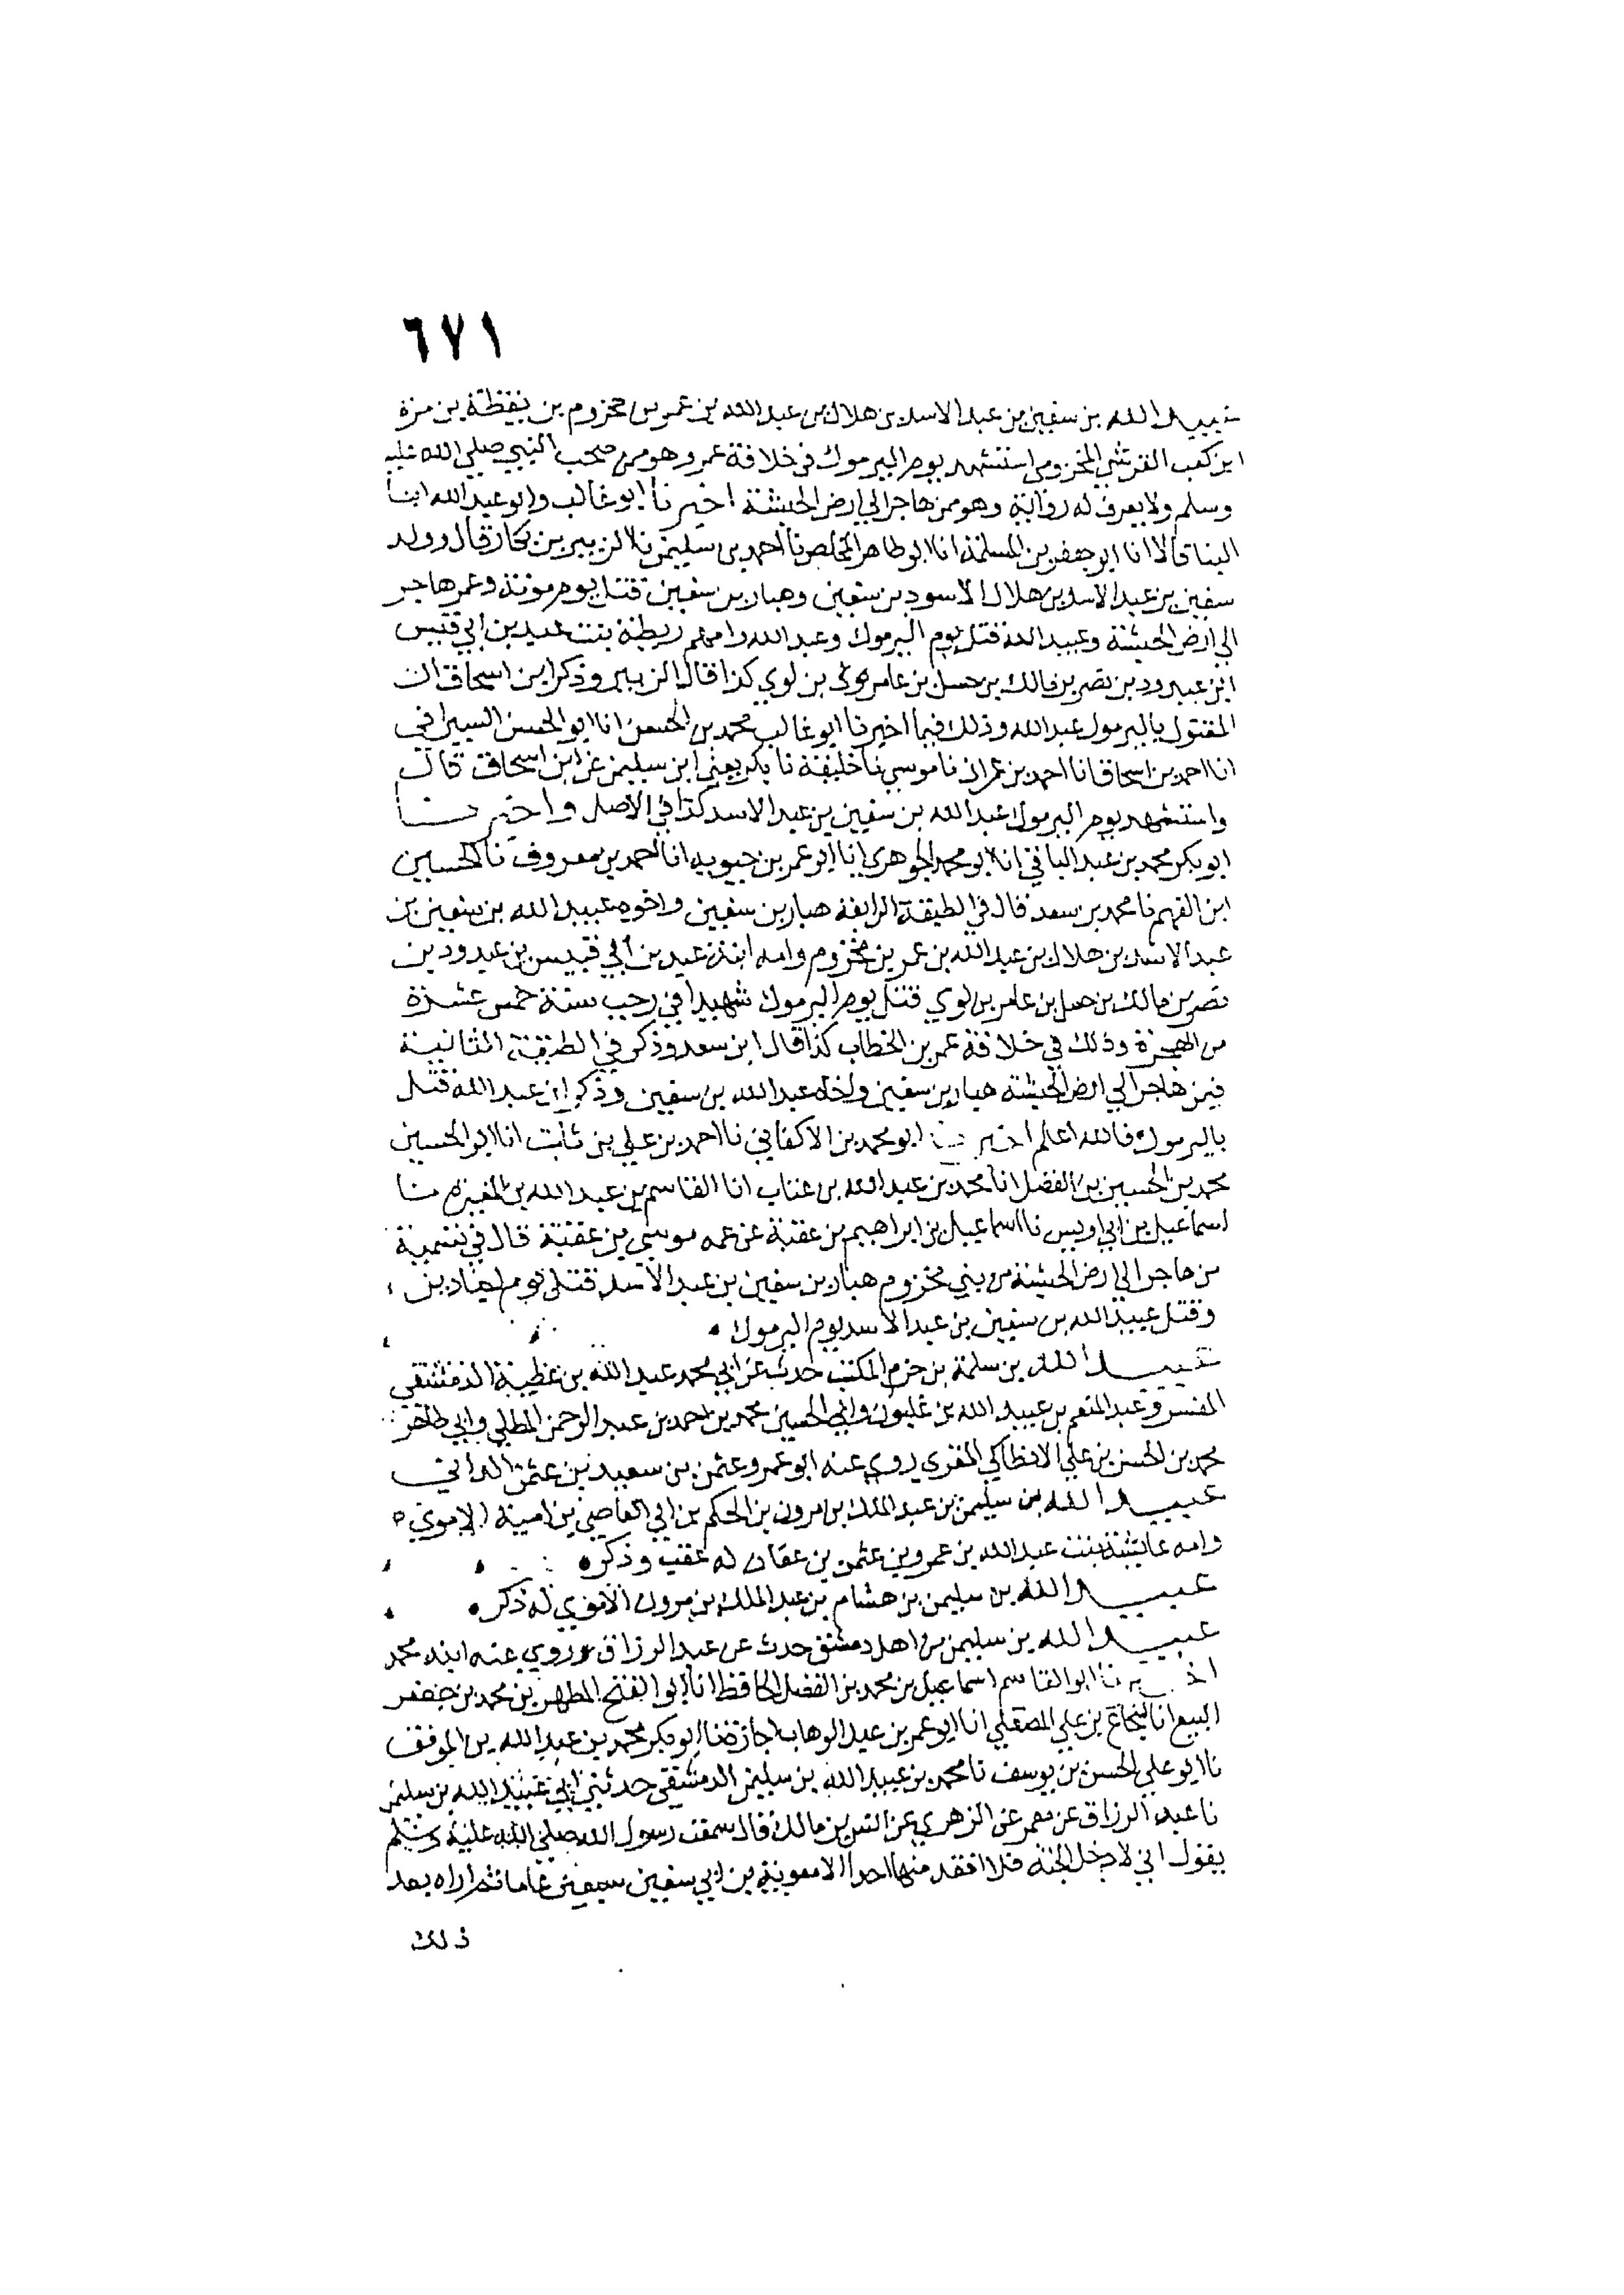 ٦٧١
عبيد الله بن سفين بن عبد الاسد بن هلال بن عبد الله بن عمر بن مخزوم بن يقظة بن مرة
ابن كعب القرشي المخزومي استشهد يوم اليرموك في خلافة عمر وهو ممن صحب النبي صلى الله عليه
وسلم ولا يعرف له رواية وهو ممن هاجر الي ارض الحبشة اخبرنا ابو غالب وابو عبد الله ابنا
البنا قالا انا ابو جعفر بن المسلمة انا ابو طاهر المخلص نا احمد بن سليمن نا الزبير بن بكار قال وولد
سفين بن عبد الاسد بن هلال الاسود بن سفين وهبار بن سفين قتل يوم موتة وعمر هاجر
الي ارض الحبشة وعبيد الله قتل يوم اليرموك وعبد الله وامهم ريطة بنت عبد بن ابي قيس
ابن عبد ود بن نصر بن مالك بن حسل بن عامر بن لوي كذا قال الزبير وذكر ابن اسحاق ان
المقتول باليرموك عبد الله وذلك فيما اخبرنا ابو غالب محمد بن الحسن انا ابو الحسن السيرافي
انا احمد بن اسحاق انا احمد بن عمران نا موسي نا خليفة نا بكر يعني ابن سليمن عن ابن اسحاق قال
واستشهد يوم اليرموك عبد الله بن سفين بن عبد الاسد كذا في الاصل واخبرنا
ابو بكر محمد بن عبد الباقي انا ابو محمد الجوهري انا ابو عمر بن حيويه انا احمد بن معروف نا الحسين
ابن الفهم نا محمد بن سعد قال في الطبقة الرابعة هبار بن سفين واخوه عبيد الله بن سفين بن
عبد الاسد بن هلال بن عبد الله بن عمر بن مخزوم وامه ابنة عبد بن ابي قيس بن عبد ود بن
نصر بن مالك بن حسل بن عامر بن لوي قتل يوم اليرموك شهيدا في رجب سنة خمس عشرة
من الهجرة وذلك في خلافة عمر بن الخطاب كذا قال ابن سعد وذكر في الطبقة الثانية
فيمن هاجر الي ارض الحبشة هبار بن سفين واخاه عبد الله بن سفين وذكر ان عبد الله قتل
باليرموك فالله اعلم اخبرنا ابو محمد بن الاكفاني نا احمد بن علي بن ثابت انا ابو الحسين
محمد بن الحسين بن الفضل انا محمد بن عبد الله بن عتاب انا القاسم بن عبد الله بن المغيرة نا
اسماعيل بن ابي اويس نا اسماعيل بن ابراهيم بن عقبة عن عمه موسي بن عقبة قال في تسمية
من هاجر الي ارض الحبشة من بني مخزوم هبار بن سفين بن عبد الاسد قتل يوم اجنادين
وقتل عبيد الله بن سفين بن عبد الاسد يوم اليرموك
عبيد الله بن سلمة بن حزم المكتب حدث عن ابي محمد عبد الله بن عطية الدمشقي
المفسر وعبد المنعم بن عبيد الله بن غلبون وابي الحسين محمد بن احمد بن عبد الرحمن الملطي وابي طاهر
محمد بن الحسن بن علي الانطاكي المقري روي عنه ابو عمرو عثمن بن سعيد بن عثمن الداني
عبيد الله بن سليمن بن عبد الملك بن مرون بن الحكم بن ابي العاصي بن امية الاموي
وامه عايشة بنت عبد الله بن عمرو بن عثمن بن عفان له عقب وذكر
عبيد الله بن سليمن بن هشام بن عبد الملك بن مرون الاموي له ذكر
عبيد الله بن سليمن من اهل دمشق حدث عن عبد الرزاق وروي عنه ابنه محمد
اخبرنا ابو القاسم اسماعيل بن محمد بن الفضل الحافظ انا ابو الفتح المطهر بن محمد بن جعفر
البيع انا شجاع بن علي المصقلي انا ابو عمر بن عبد الوهاب اجازة نا ابو بكر محمد بن عبد الله بن الموفق
نا ابو علي الحسن بن يوسف نا محمد بن عبيد الله بن سليمن الدمشقي حدثني ابي عبيد الله بن سليمن
نا عبد الرزاق عن معمر عن الزهري عن انس بن مالك قال سمعت رسول الله صلى الله عليه وسلم
يقول اني لادخل الجنة فلا افقد منها احدا الا معوية بن ابي سفين سبعين عاما ثم اراه بعد
ذلك